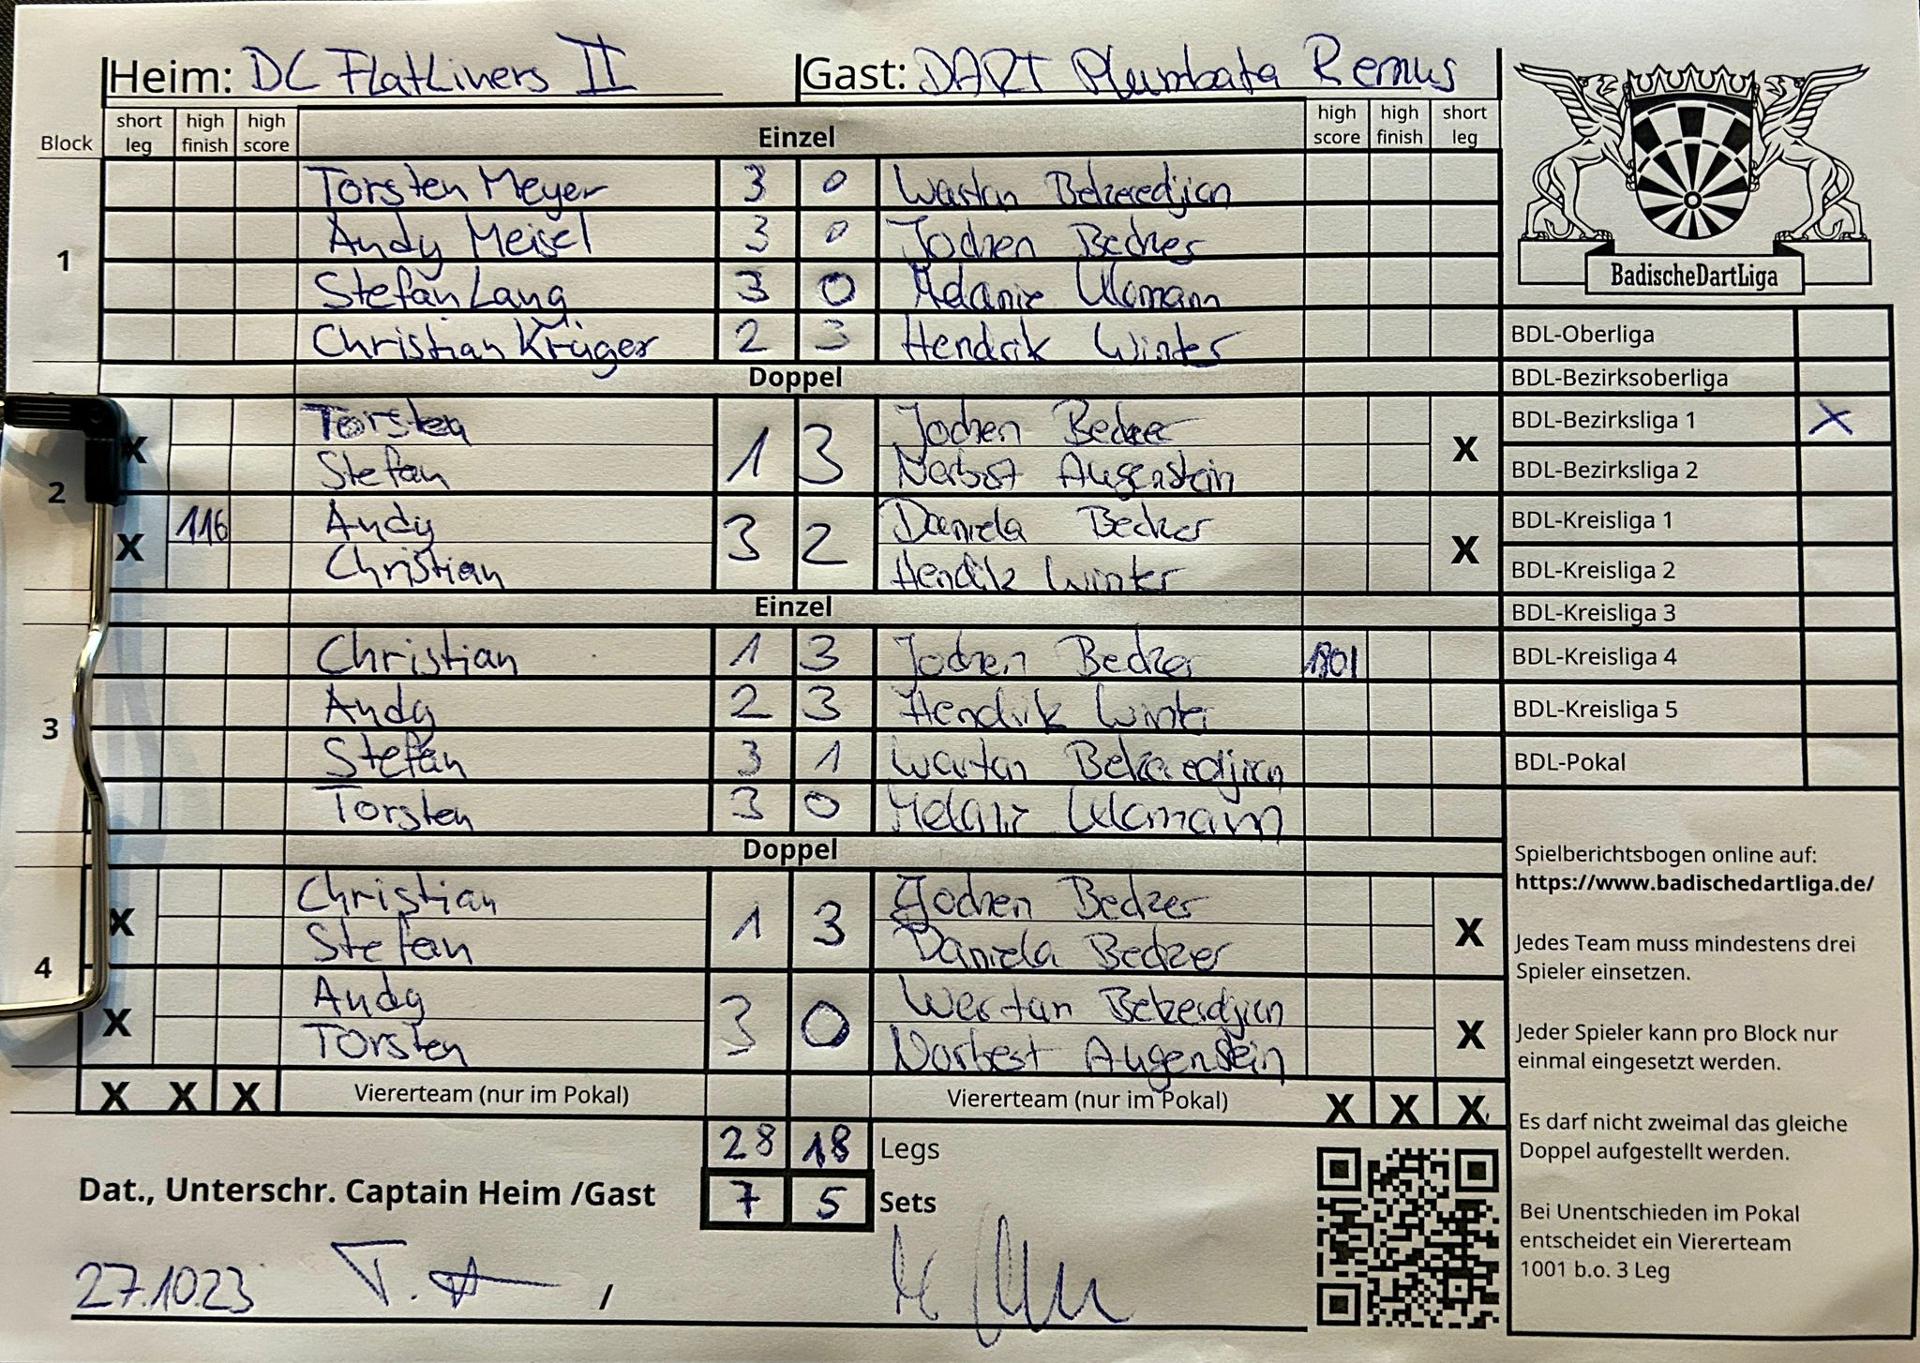 Heim: DC FlatLiners II Gast: DART Plumbata Remus
Block short leg high finish high score Einzel high score high finish short leg
1
Torsten Meyer 3 0 Wartan Bekeredjian
Andy Meisel 3 0 Jochen Becker
Stefan Lang 3 0 Melanie Ulomann
Christian Krüger 2 3 Hendrik Winter
Doppel
2
X Torsten 1 3 Jochen Becker X
Stefan Norbert Augenstein
X 116 Andy 3 2 Daniela Becker X
Christian Hendrik Winter
Einzel
3
Christian 1 3 Jochen Becker
Andy 2 3 Hendrik Winter
Stefan 3 1 Wartan
Torsten 3 0 Melanie Ulomann
Doppel
4
X Christian 1 3 Jochen Becker X
Stefan Daniela Becker
X Andy 3 0 Wartan X
Torsten Norbert Augenstein
X X X Viererteam (nur im Pokal) Viererteam (nur im Pokal) X X X
28 18 Legs
7 5 Sets
Dat., Unterschr. Captain Heim /Gast
27.10.23 /
BadischeDartLiga
BDL-Oberliga
BDL-Bezirksoberliga
BDL-Bezirksliga 1 X
BDL-Bezirksliga 2
BDL-Kreisliga 1
BDL-Kreisliga 2
BDL-Kreisliga 3
BDL-Kreisliga 4
BDL-Kreisliga 5
BDL-Pokal
Spielberichtsbogen online auf:
https://www.badischedartliga.de/
Jedes Team muss mindestens drei
Spieler einsetzen.
Jeder Spieler kann pro Block nur
einmal eingesetzt werden.
Es darf nicht zweimal das gleiche
Doppel aufgestellt werden.
Bei Unentschieden im Pokal
entscheidet ein Viererteam
1001 b.o. 3 Leg